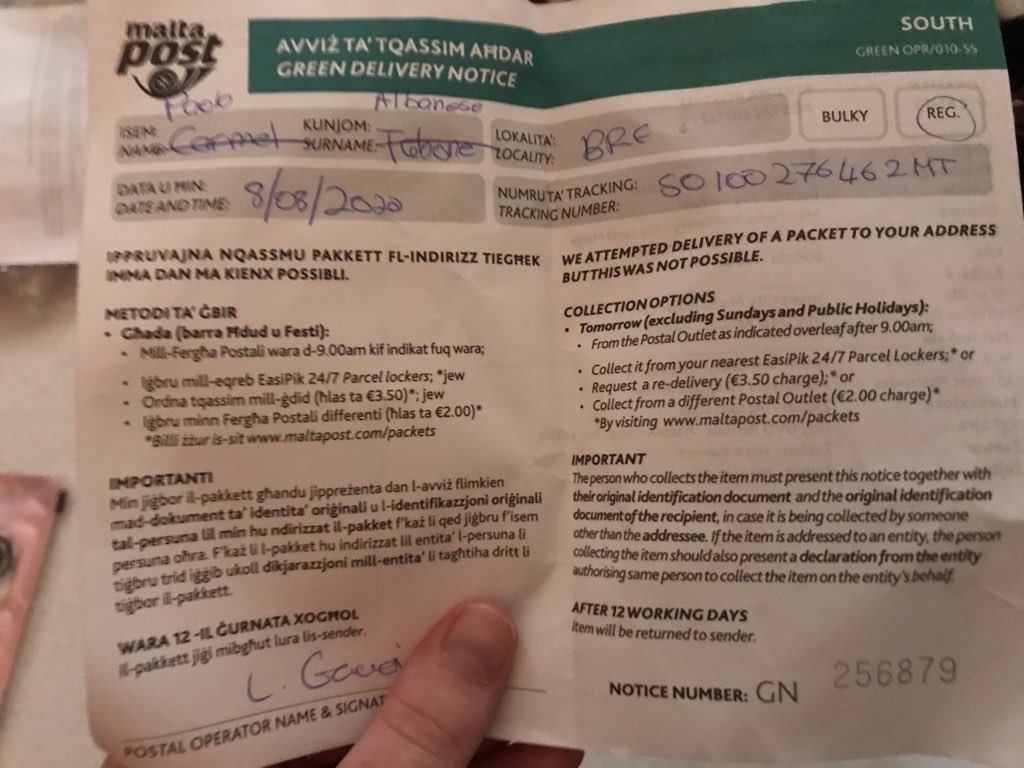 malta
post
AVVIŻ TA' TQASSIM AĦDAR
GREEN DELIVERY NOTICE
SOUTH
GREEN OPR/010-SS
Paolo Albanese
ISEM: KUNJOM:
NAME: Carmel SURNAME: Tabone
LOKALITA':
LOCALITY:
BULKY
REG.
DATA U ĦIN:
DATE AND TIME: 8/08/2020
NUMRU TA' TRACKING:
TRACKING NUMBER: SO100276462MT
IPPRUVAJNA NQASSMU PAKKETT FL-INDIRIZZ TIEGĦEK
IMMA DAN MA KIENX POSSIBLI.
METODI TA' ĠBIR
• Għada (barra Ħdud u Festi):
• Mill-Fergħa Postali wara d-9.00am kif indikat fuq wara;
• Iġbru mill-eqreb EasiPik 24/7 Parcel lockers; *jew
• Ordna tqassim mill-ġdid (ħlas ta €3.50)*; jew
• Iġbru minn Fergħa Postali differenti (ħlas ta €2.00)*
*Billi żżur is-sit www.maltapost.com/packets
IMPORTANTI
Min jiġbor il-pakkett għandu jippreżenta dan l-avviż flimkien
mad-dokument ta' identita' oriġinali u l-identifikazzjoni oriġinali
tal-persuna lil min hu ndirizzat il-pakket f'każ li qed jiġbru f'isem
persuna oħra. F'każ li l-pakket hu indirizzat lil entita' l-persuna li
tiġbru trid iġġib ukoll dikjarazzjoni mill-entita' li tagħtiha dritt li
tiġbor il-pakkett.
WARA 12 -IL ĠURNATA XOGĦOL
Il-pakkett jiġi mibgħut lura lis-sender.
L.
POSTAL OPERATOR NAME &
WE ATTEMPTED DELIVERY OF A PACKET TO YOUR ADDRESS
BUT THIS WAS NOT POSSIBLE.
COLLECTION OPTIONS
• Tomorrow (excluding Sundays and Public Holidays):
• From the Postal Outlet as indicated overleaf after 9.00am;
• Collect it from your nearest EasiPik 24/7 Parcel Lockers;* or
• Request a re-delivery (€3.50 charge);* or
• Collect from a different Postal Outlet (€2.00 charge)*
*By visiting www.maltapost.com/packets
IMPORTANT
The person who collects the item must present this notice together with
their original identification document and the original identification
document of the recipient, in case it is being collected by someone
other than the addressee. If the item is addressed to an entity, the person
collecting the item should also present a declaration from the entity
authorising same person to collect the item on the entity's behalf.
AFTER 12 WORKING DAYS
Item will be returned to sender.
NOTICE NUMBER: GN 256879